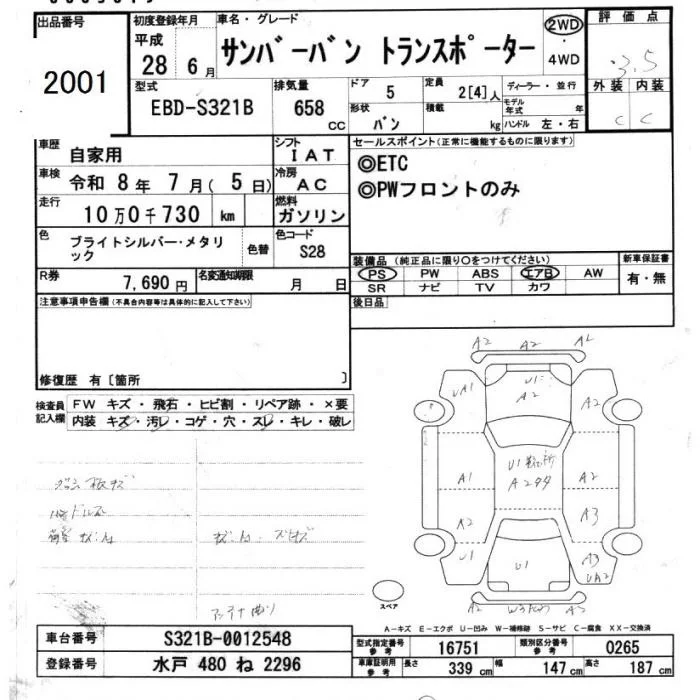 出品番号 初度登録年月 車名・グレード 2WD 評価点
2001 平成 28 6月 サンバーバン トランスポーター ・ 4WD 3.5
型式 排気量 ドア 定員 ディーラー・並行 外装 内装
EBD-S321B 658 CC 5 2[4]人 モデル年式 年 C C
形状 バン 積載 kg ハンドル 左・右
車歴 自家用 シフト IAT セールスポイント(正常に機能するものに限ります)
車検 令和 8年 7月( 5日) 冷房 AC ◎ETC
走行 10万0千730 km 燃料 ガソリン ◎PWフロントのみ
色 ブライトシルバー・メタリック 色替 色コード S28
装備品(純正品に限り○をつけてください) 新車保証書
R券 7,690円 名変通知期限 月 日 PS PW ABS エアB AW 有・無
SR ナビ TV カワ
注意事項申告欄(不具合内容等は具体的に記入して下さい) 後日品
修復歴 有〔箇所 〕
検査員記入欄 FW キズ・飛石・ヒビ割・リペア跡・×要
内装 キズ・汚レ・コゲ・穴・スレ・キレ・破レ
A2 A2
UA1 U1 A2 A2
A1 U1 A2
A2 A3
U1 U1 A3 UA2
スペア A2
A－キズ E－エクボ U－凹み W－補修跡 S－サビ C－腐食 XX－交換済
車台番号 S321B-0012548 型式指定番号 参考 16751 類別区分番号 参考 0265
登録番号 水戸 480 ね 2296 車庫証明用 参考 長さ 339 cm 幅 147 cm 高さ 187 cm